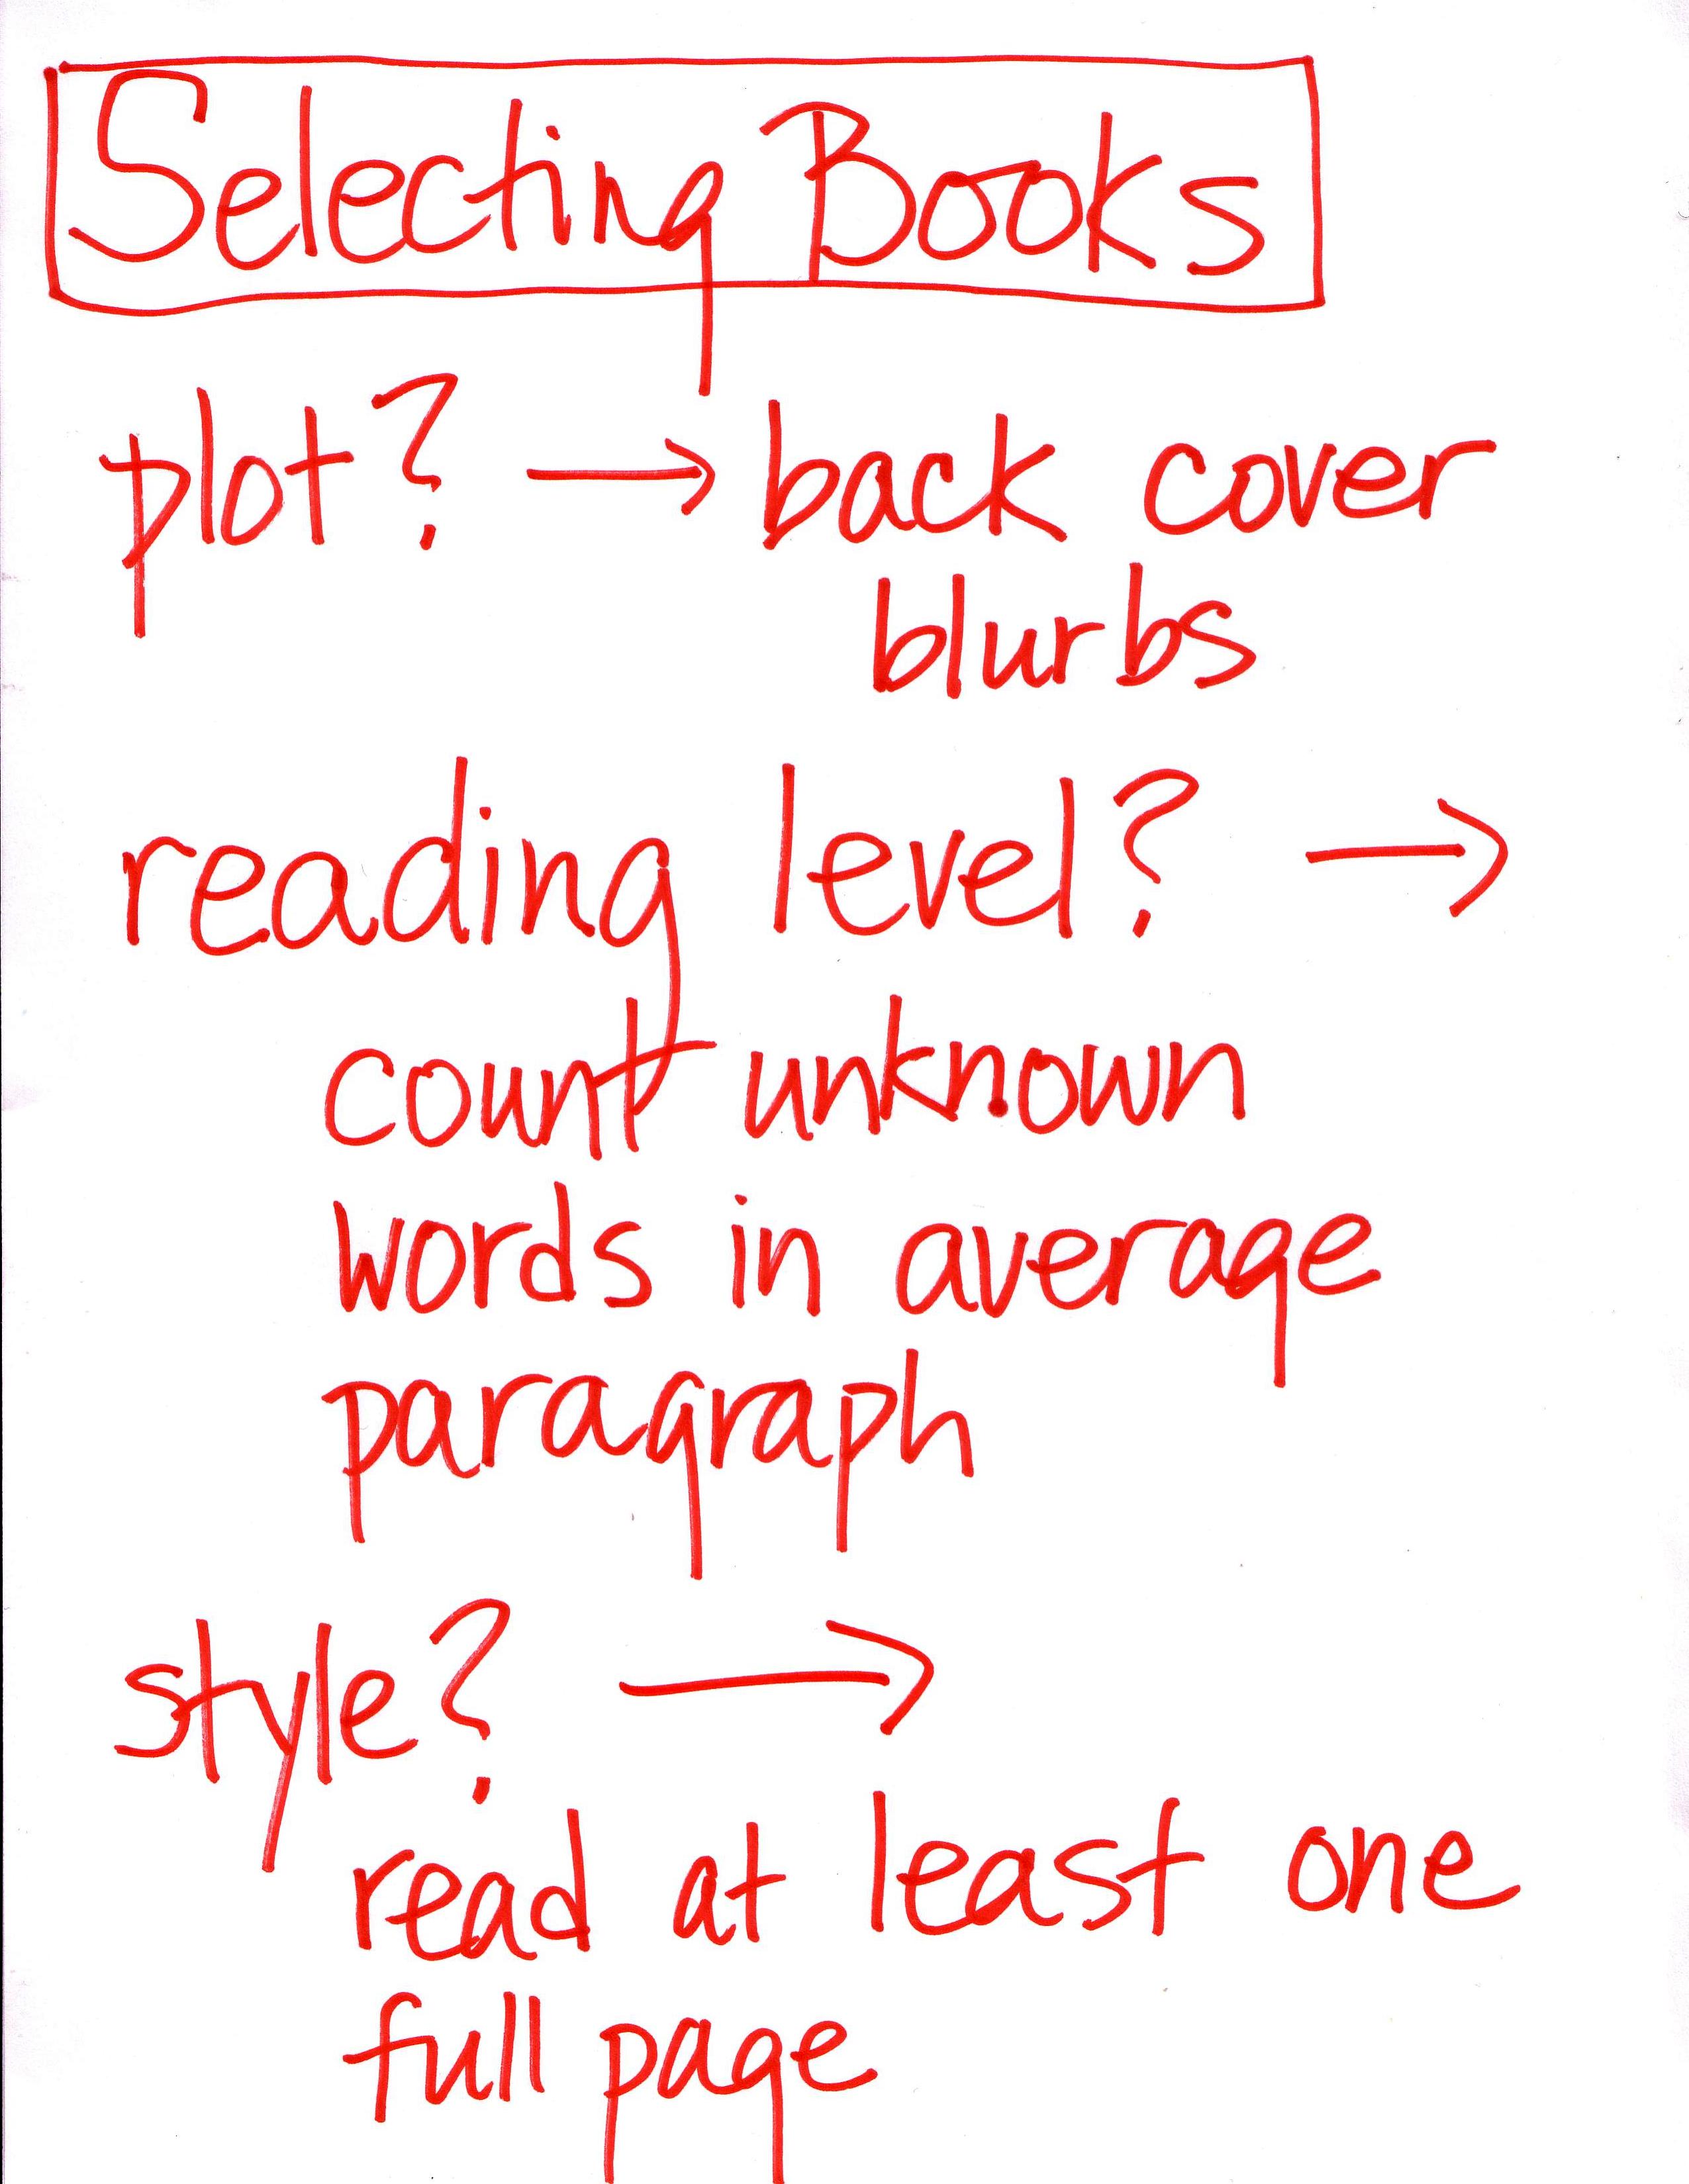 Selecting Books
plot? → back cover
blurbs
reading level? →
count unknown
words in average
paragraph
style? →
read at least one
full page